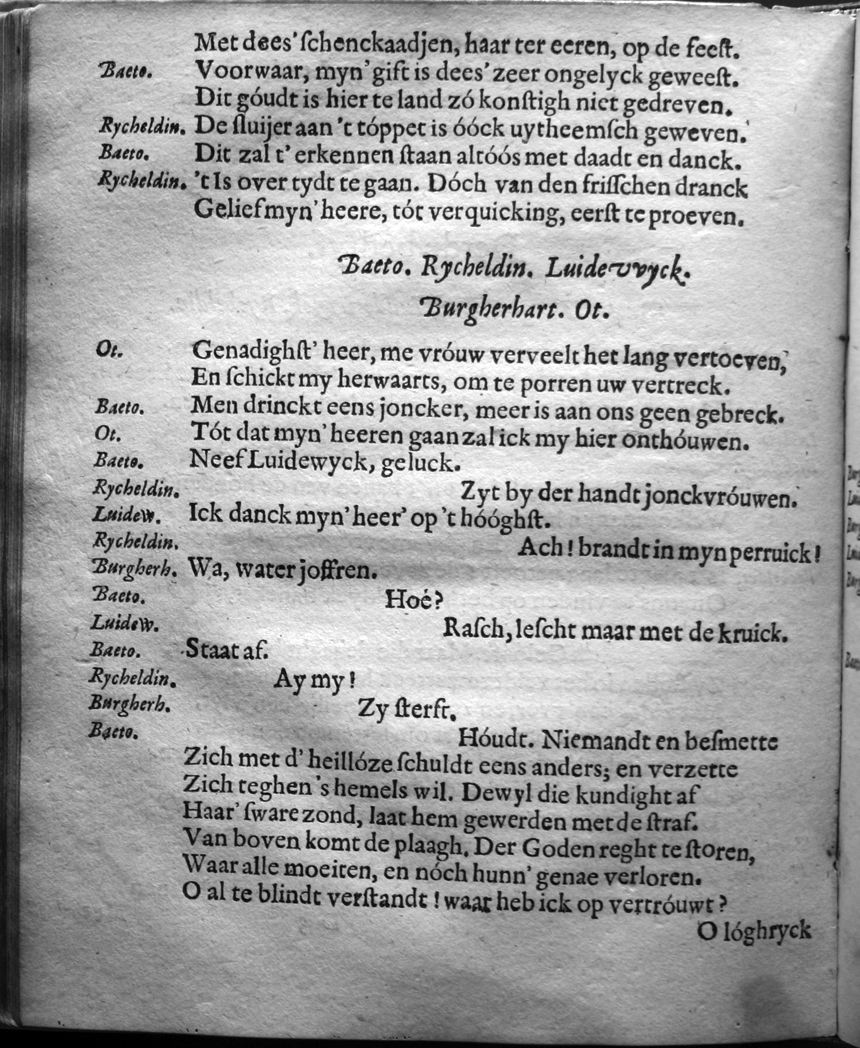 Met dees' ſchenckaadjen, haar ter eeren, op de feeſt.
Baeto. Voorwaar, myn' gift is dees' zeer ongelyck geweeſt.
Dit góudt is hier te land zó konſtigh niet gedreven.
Rycheldin. De ſluijer aan 't tóppet is óóck uytheemſch geweven.
Baeto. Dit zal t' erkennen ſtaan altóós met daadt en danck.
Rycheldin. 't Is over tydt te gaan. Dóch van den friſſchen dranck
Gelief myn' heere, tót verquicking, eerſt te proeven.
Baeto. Rycheldin. Luidewyck.
Burgherhart. Ot.
Ot. Genadighſt' heer, me vróuw verveelt het lang vertoeven,
En ſchickt my herwaarts, om te porren uw vertreck.
Baeto. Men drinckt eens joncker, meer is aan ons geen gebreck.
Ot. Tót dat myn' heeren gaan zal ick my hier onthóuwen.
Baeto. Neef Luidewyck, geluck.
Rycheldin. Zyt by der handt jonckvróuwen.
Luidew. Ick danck myn' heer' op 't hóóghſt.
Rycheldin. Ach! brandt in myn perruick!
Burgherh. Wa, water joffren.
Baeto. Hoé?
Luidew. Raſch, leſcht maar met de kruick.
Baeto. Staat af.
Rycheldin. Ay my!
Burgherh. Zy ſterft.
Baeto. Hóudt. Niemandt en beſmette
Zich met d' heillóze ſchuldt eens anders; en verzette
Zich teghen 's hemels wil. Dewyl die kundight af
Haar' ſware zond, laat hem gewerden met de ſtraf.
Van boven komt de plaagh. Der Goden reght te ſtoren,
Waar alle moeiten, en nóch hunn' genae verloren.
O al te blindt verſtandt! waar heb ick op vertróuwt?
O lóghryck